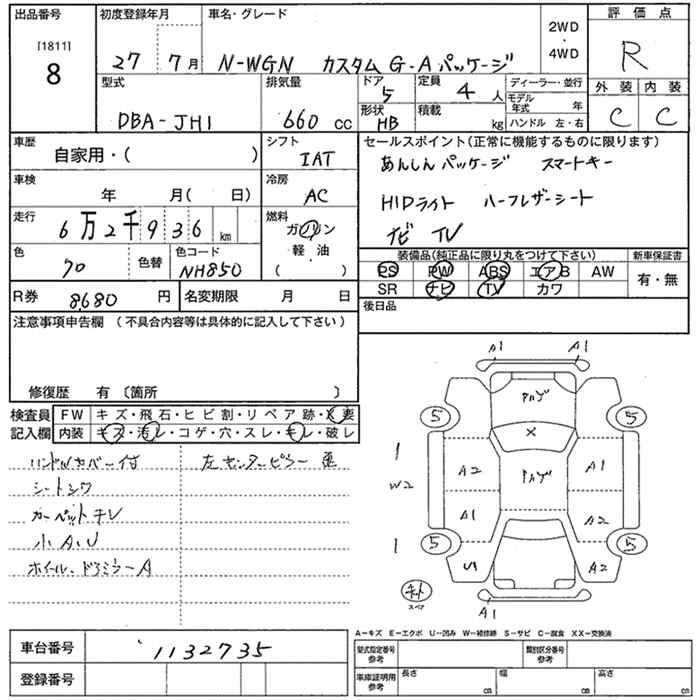 出品番号 初度登録年月 車名・グレード 評価点
[1811] 8 27 7月 N-WGN カスタム G・Aパッケージ 2WD・4WD R
型式 排気量 ドア 5 定員 4人 ディーラー・並行 外装 内装
DBA-JH1 660 cc 形状 HB 積載 kg モデル年式 年 ハンドル 左・右 C C
車歴 自家用・( ) シフト IAT セールスポイント(正常に機能するものに限ります)
あんしんパッケージ スマートキー
車検 年 月( 日) 冷房 AC
HIDライト ハーフレザーシート
走行 6万2千936 km 燃料 ガソリン・軽・油 ( )
ナビ TV
色 70 色替 色コード NH850
装備品(純正品に限り丸をつけて下さい) 新車保証書
PS PW ABS エアB AW 有・無
SR ナビ TV カワ
R券 8,680 円 名変期限 月 日
後日品
注意事項申告欄 (不具合内容等は具体的に記入して下さい)
修復歴 有 〔箇所 〕
検査員記入欄 FW キズ・飛石・ヒビ割・リペア跡・X要
内装 キズ・汚レ・コゲ・穴・スレ・キレ・破レ
ハンドルカバー付 左センターピラー
シートシワ
カーペットキレ
小A.U
ホイール、ドアミラーA
A1 A1
アカゲ
5 5
1 A2 A1
W2 アカゲ
A1 A2
1 5 5
U1 A2
キット スペア A1
A-キズ E-エクボ U-凹み W-補修跡 S-サビ C-腐食 XX-交換済
車台番号 1132735 型式指定番号 参考 類別区分番号 参考
登録番号 車庫証明用 参考 長さ cm 幅 cm 高さ cm